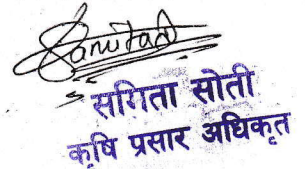 सगिता सोती
कृषि प्रसार अधिकृत